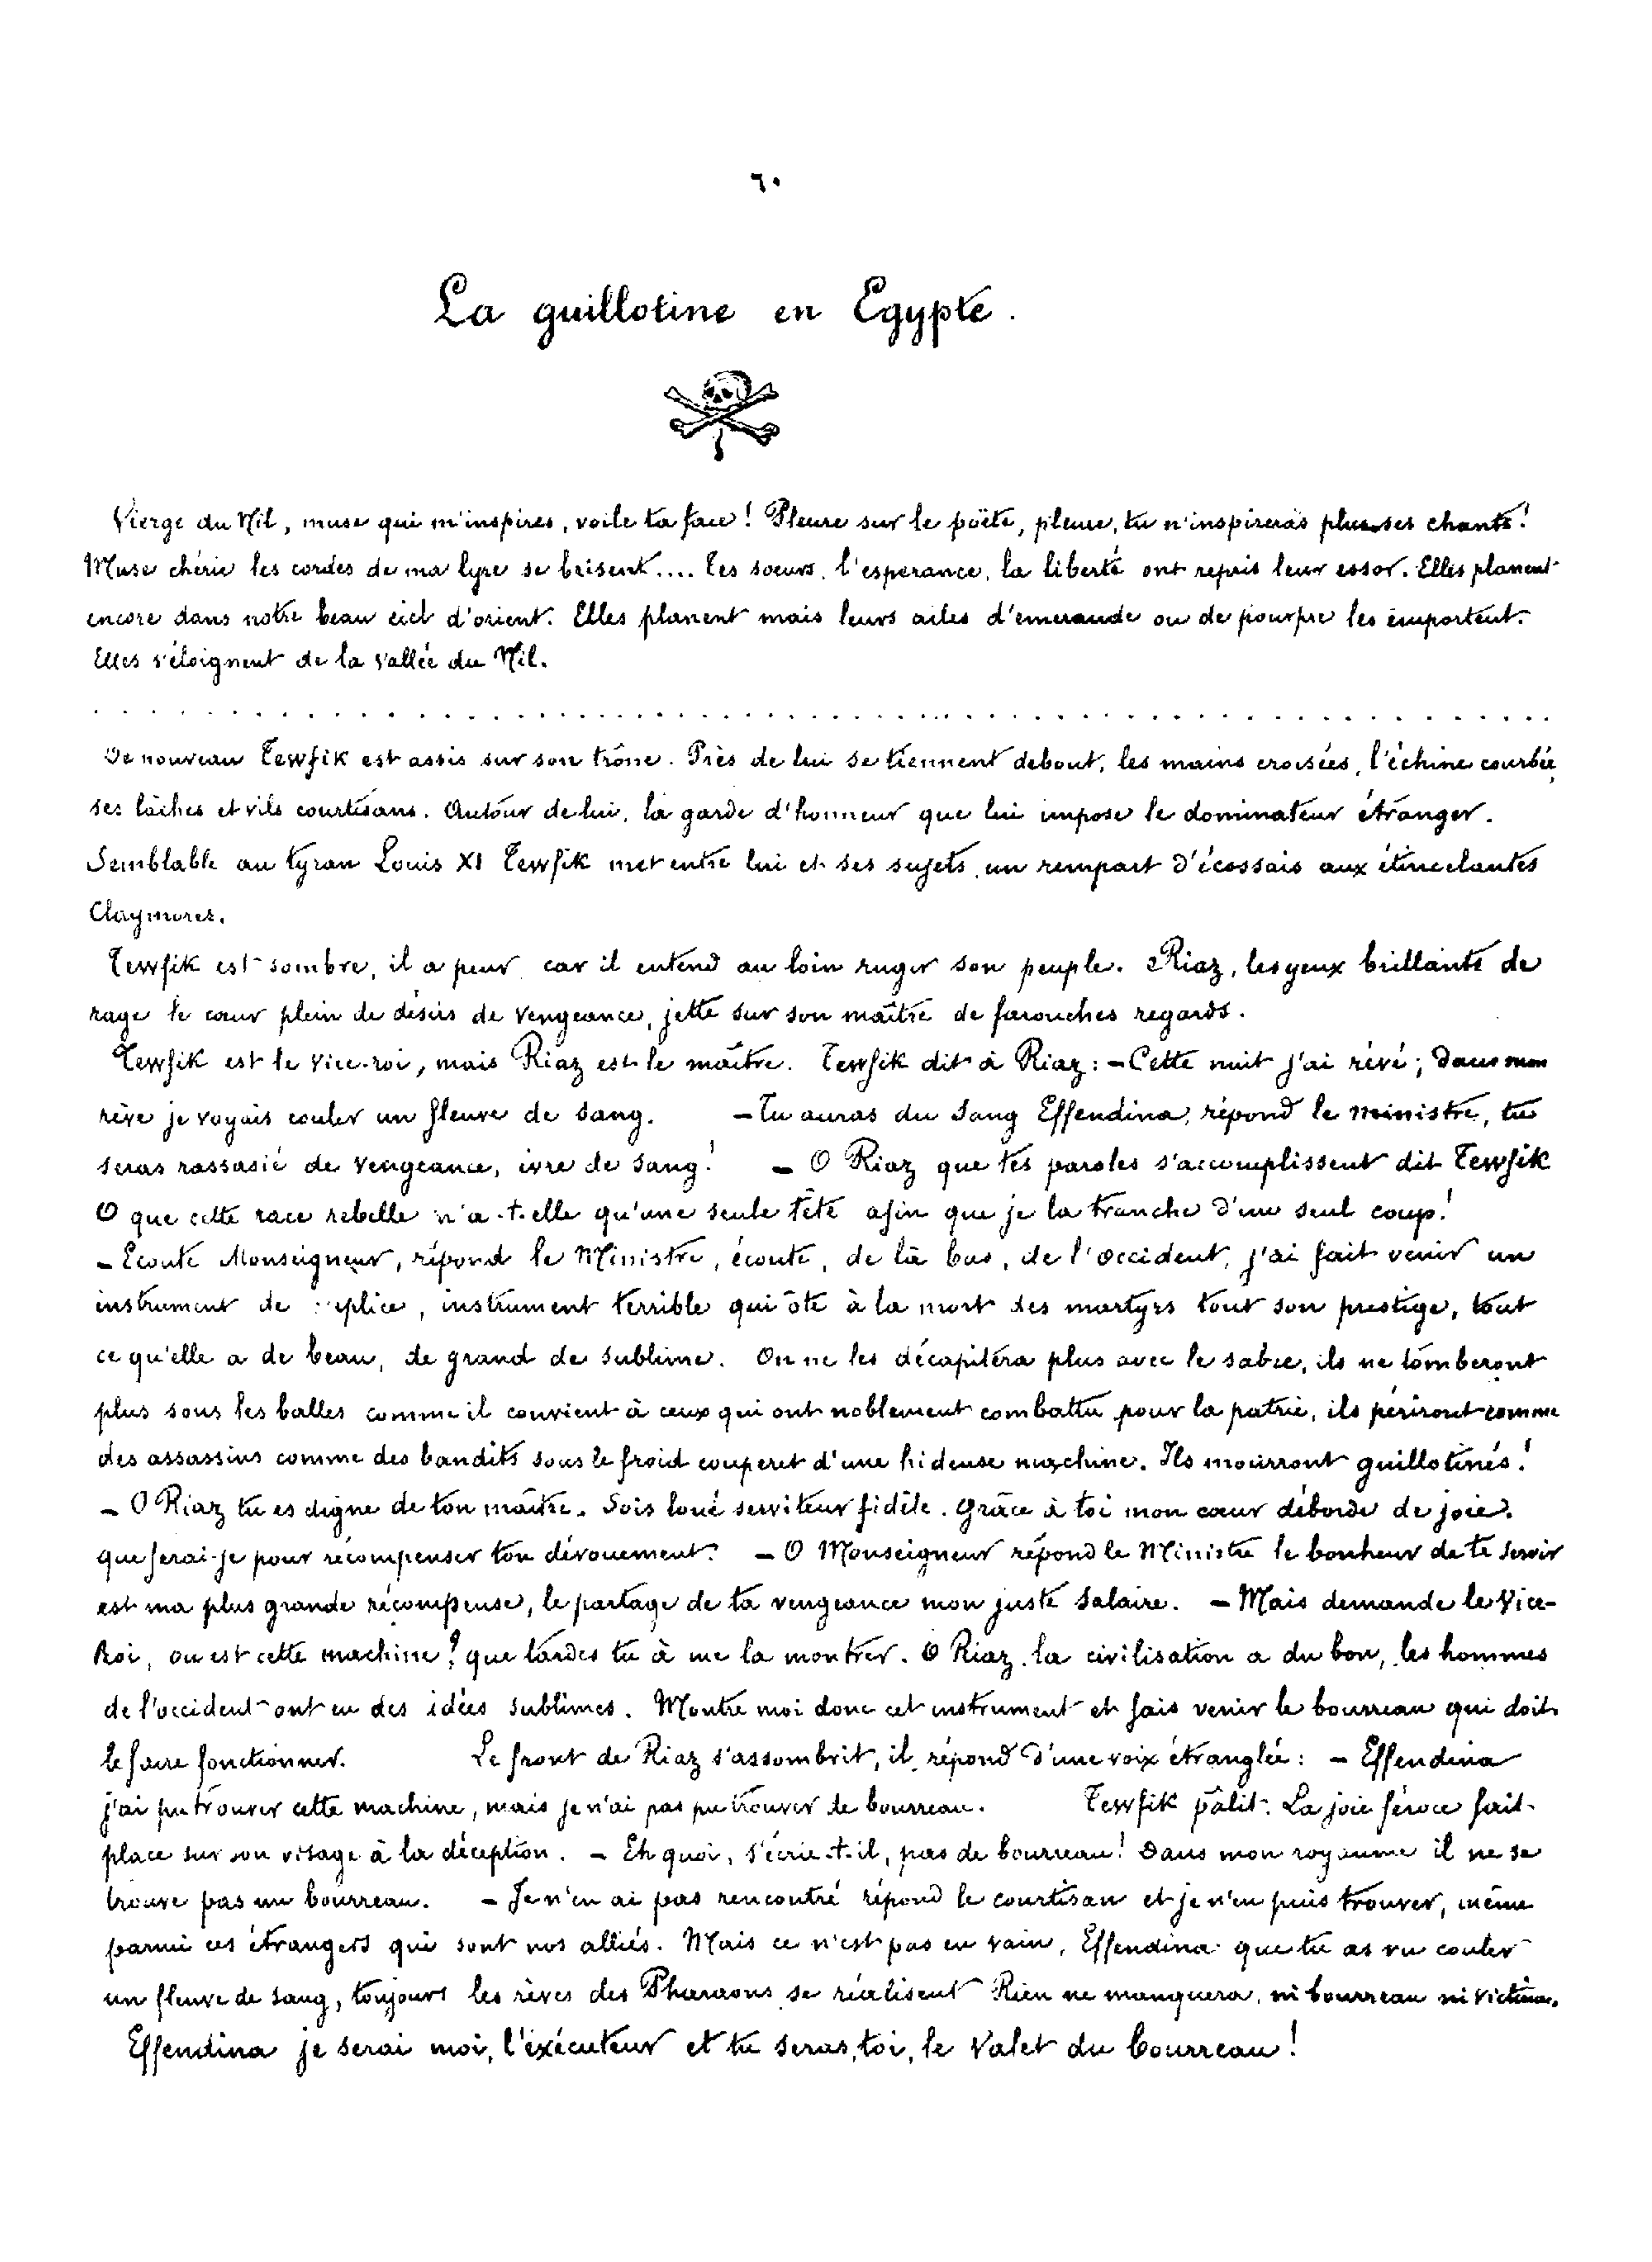 ٦٠
La guillotine en Egypte.
Vierge du Nil, muse qui m'inspires, voile ta face! Pleure sur le poëte, pleure, tu n'inspireras plus ses chants!
Muse chérie les cordes de ma lyre se brisent.... tes soeurs, l'esperance, la liberté ont repris leur essor. Elles planent
encore dans notre beau ciel d'orient. Elles planent mais leurs ailes d'emeraude ou de pourpre les emportent.
Elles s'éloignent de la vallée du Nil.
De nouveau Tewfik est assis sur son trône. Près de lui se tiennent debout, les mains croisées, l'échine courbée,
ses lâches et vils courtisans. Autour de lui, la garde d'honneur que lui impose le dominateur étranger.
Semblable au tyran Louis XI Tewfik met entre lui et ses sujets, un rempart d'écossais aux étincelantes
Claymores.
Tewfik est sombre, il a peur car il entend au loin rugir son peuple. Riaz, les yeux brillants de
rage le cœur plein de désirs de vengeance, jette sur son maître de farouches regards.
Tewfik est le vice-roi, mais Riaz est le maître. Tewfik dit à Riaz: - Cette nuit j'ai rêvé; dans mon
rêve je voyais couler un fleuve de sang. - Tu auras du sang Effendina, répond le ministre, tu
seras rassasié de vengeance, ivre de sang! - O Riaz que tes paroles s'accomplissent dit Tewfik
O que cette race rebelle n'a-t-elle qu'une seule tête afin que je la tranche d'un seul coup!
- Ecoute Monseigneur, répond le Ministre, écoute, de là bas, de l'occident, j'ai fait venir un
instrument de supplice, instrument terrible qui ôte à la mort des martyrs tout son prestige, tout
ce qu'elle a de beau, de grand de sublime. On ne les décapitera plus avec le sabre, ils ne tomberont
plus sous les balles comme il convient à ceux qui ont noblement combattu pour la patrie, ils périront comme
des assassins comme des bandits sous le froid couperet d'une hideuse machine. Ils mourront guillotinés!
- O Riaz tu es digne de ton maître. Sois loué serviteur fidèle. Grâce à toi mon cœur déborde de joie.
que ferai-je pour récompenser ton dévouement? - O Monseigneur répond le Ministre le bonheur de te servir
est ma plus grande récompense, le partage de ta vengeance mon juste salaire. - Mais demande le Vice-
Roi, ou est cette machine? que tardes tu à me la montrer. O Riaz, la civilisation a du bon, les hommes
de l'occident ont eu des idées sublimes. Montre moi donc cet instrument et fais venir le bourreau qui doit
le faire fonctionner. Le front de Riaz s'assombrit, il répond d'une voix étranglée: - Effendina
j'ai pu trouver cette machine, mais je n'ai pas pu trouver de bourreau. Tewfik pâlit. La joie féroce fait
place sur son visage à la déception. - Eh quoi, s'écrie-t-il, pas de bourreau! Dans mon royaume il ne se
trouve pas un bourreau. - Je n'en ai pas rencontré répond le courtisan et je n'en puis trouver, même
parmi ces étrangers qui sont nos alliés. Mais ce n'est pas en vain, Effendina que tu as vu couler
un fleuve de sang, toujours les rêves des Pharaons se réalisent Rien ne manquera, ni bourreau ni victime.
Effendina je serai moi, l'exécuteur et tu seras, toi, le valet du bourreau!